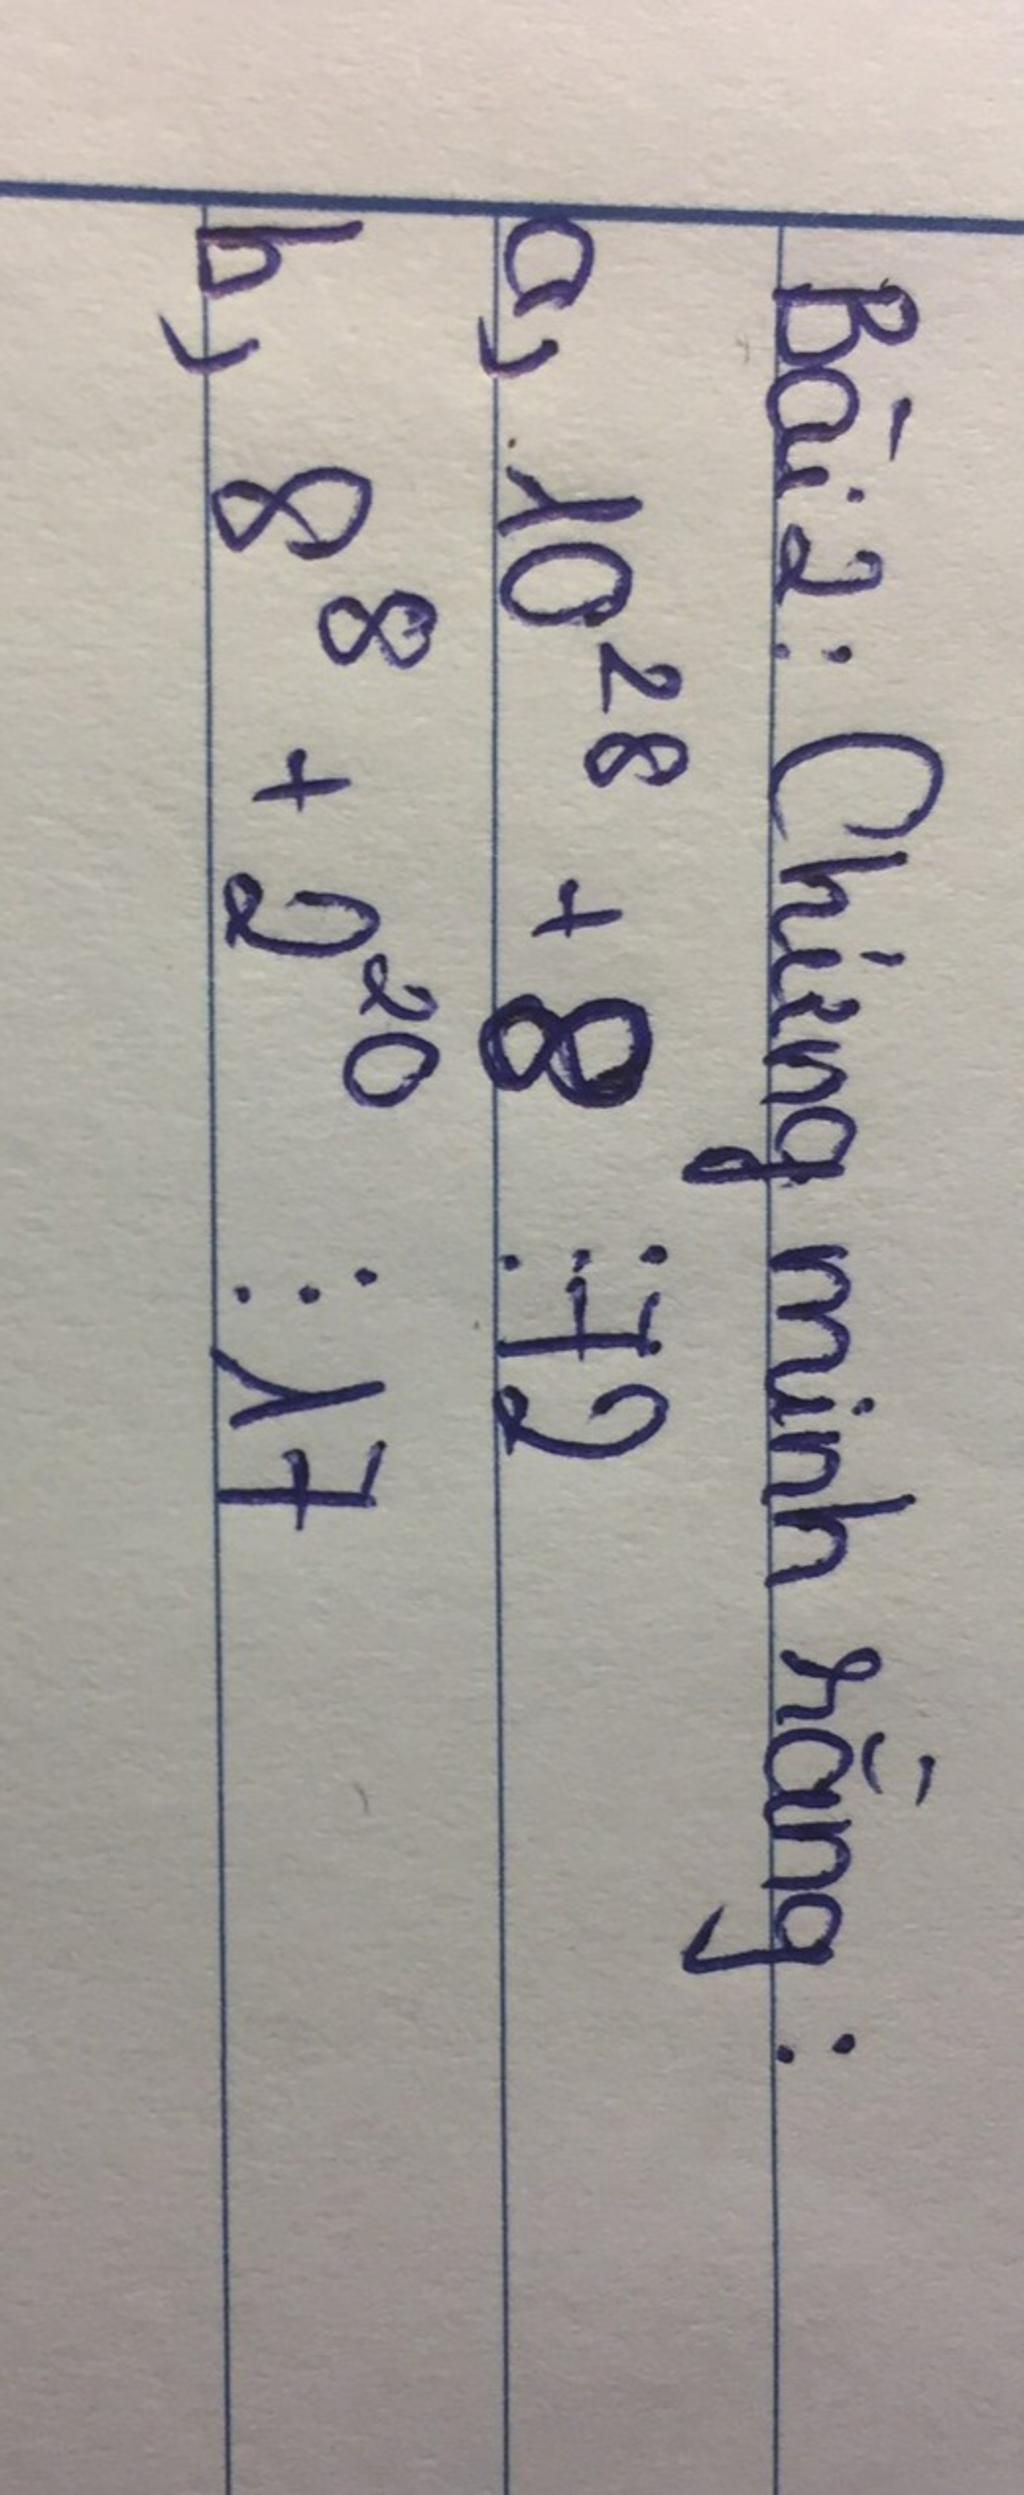 Bài 2: Chứng minh rằng:
a, 10²⁸ + 8 ⋮ 72
b, 8⁸ + 2²⁰ ⋮ 17